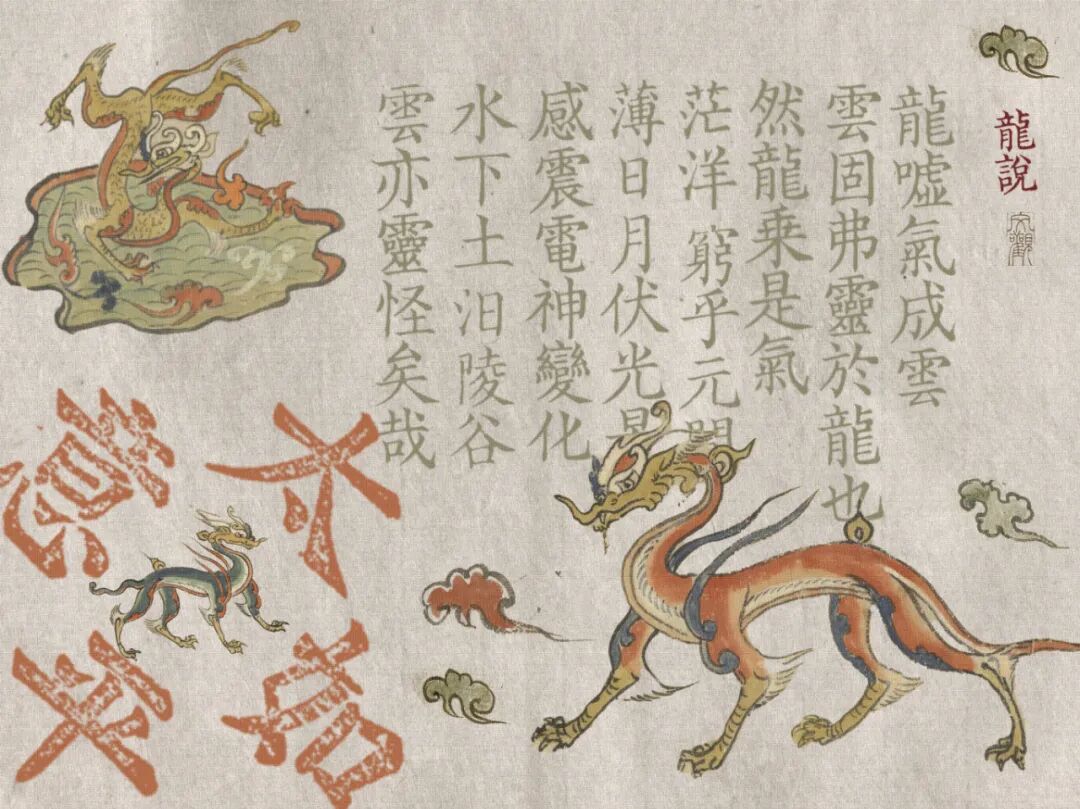 龍說
龍噓氣成雲
雲固弗靈於龍也
然龍乘是氣
茫洋窮乎元間
薄日月伏光景
感震電神變化
水下土汩陵谷
雲亦靈怪矣哉